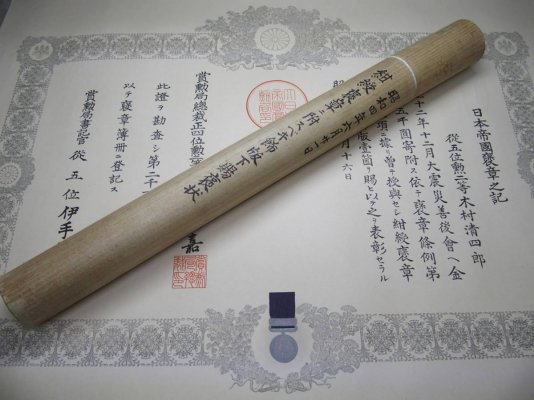 日本帝國褒章之記
從五位勲二等木村清四郎
十二年十二月大震災善後會ヘ金
五千圓寄附ス依テ褒章條例第
項ニ據リ曽テ授與セシ紺綬褒章
版壹箇ヲ賜ヒ以テ之ヲ表彰セラル
昭
月十六日
紺綬褒章ニ附スヘキ飾版下賜褒状
昭和四年六月廿一日
賞勲局總裁正四位勲
嘉
此證ヲ勘査シ第二千
以テ褒章簿冊ニ登記ス
賞勲局書記官從五位伊手